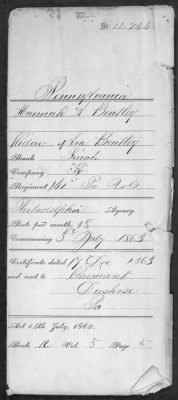 No. 12.744
Pennsylvania
Hannah L Bentley
Widow of Ira Bentley
Rank Private
Company "K"
Regiment 141st Pa Vols
Philadelphia Agency.
Rate per month, $8
Commencing 5th July 1863
Certificate dated 17 Dec 1863
and sent to Claimant
Dushore
Pa
Act 14th July, 1862.
Book A Vol. 5 Page 5